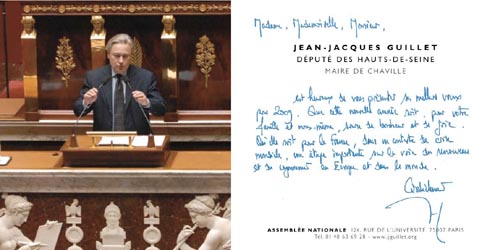 Madame, Mademoiselle, Monsieur,
JEAN-JACQUES GUILLET
DÉPUTÉ DES HAUTS-DE-SEINE
MAIRE DE CHAVILLE
est heureux de vous présenter ses meilleurs vœux
pour 2009. Que cette nouvelle année soit, pour votre
famille et vous-même, source de bonheur et de joie.
Qu'elle soit pour la France, dans un contexte de crise
mondiale, une étape importante sur la voie du renouveau
et du rayonnement en Europe et dans le monde.
Cordialement
ASSEMBLÉE NATIONALE 126, RUE DE L'UNIVERSITÉ 75007 PARIS
Tél. 01 40 63 69 28 - www.jjguillet.org